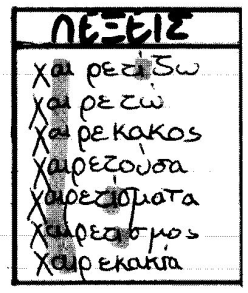 ΛΕΞΕΙΣ
χαιρετίζω
χαιρετώ
χαιρεκακος
χαιρετούσα
χαιρετίσματα
χαιρετισμος
χαιρεκακια